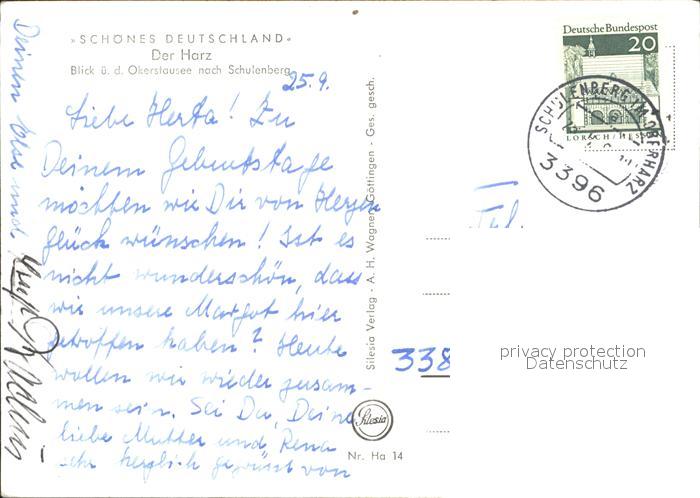 »SCHÖNES DEUTSCHLAND«
Der Harz
Blick ü. d. Okerstausee nach Schulenberg
25.9.
Liebe Herta! Zu
Deinem Geburtstage
möchten wir Dir von Herzen
Glück wünschen! Ist es
nicht wunderschön, dass
wir unsere Margot hier
getroffen haben? Heute
wollen wir wieder zusam-
men sein. Sei Du, Deine
liebe Mutter und Rena
sehr herzlich gegrüsst von
Deinen Else und
Silesia Verlag - A. H. Wagner, Göttingen - Ges. gesch.
Silesia
Nr. Ha 14
Deutsche Bundespost
20
LORSCH/HESSEN
SCHULENBERG IM OBERHARZ
3396
338
privacy protection
Datenschutz